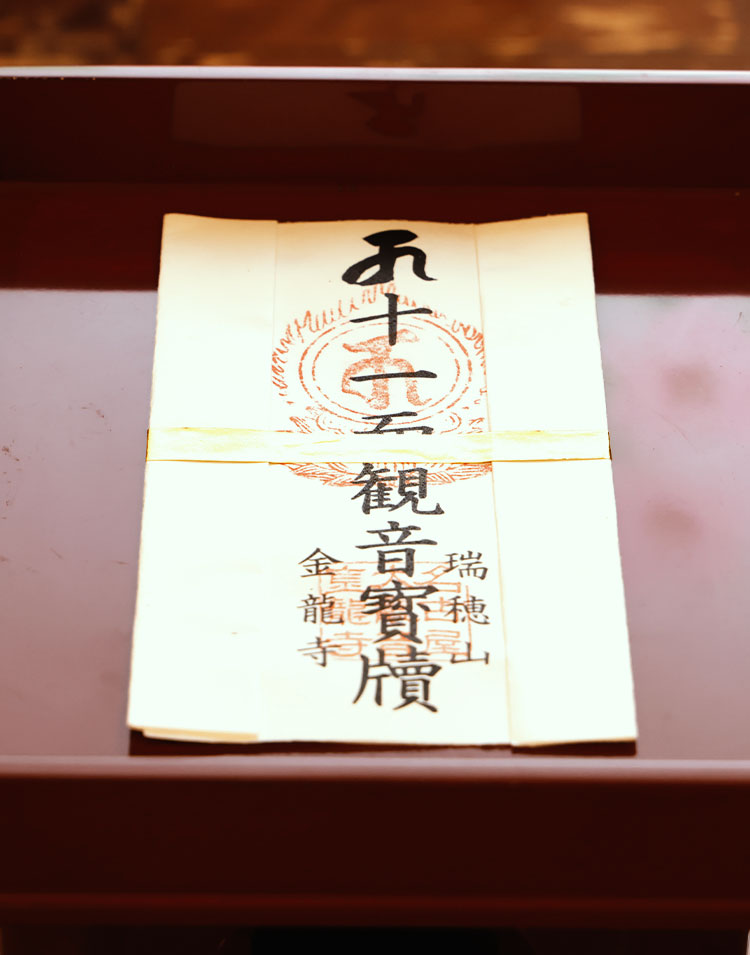 瑞穂山
十一面観音寶牘
金龍寺
名古屋